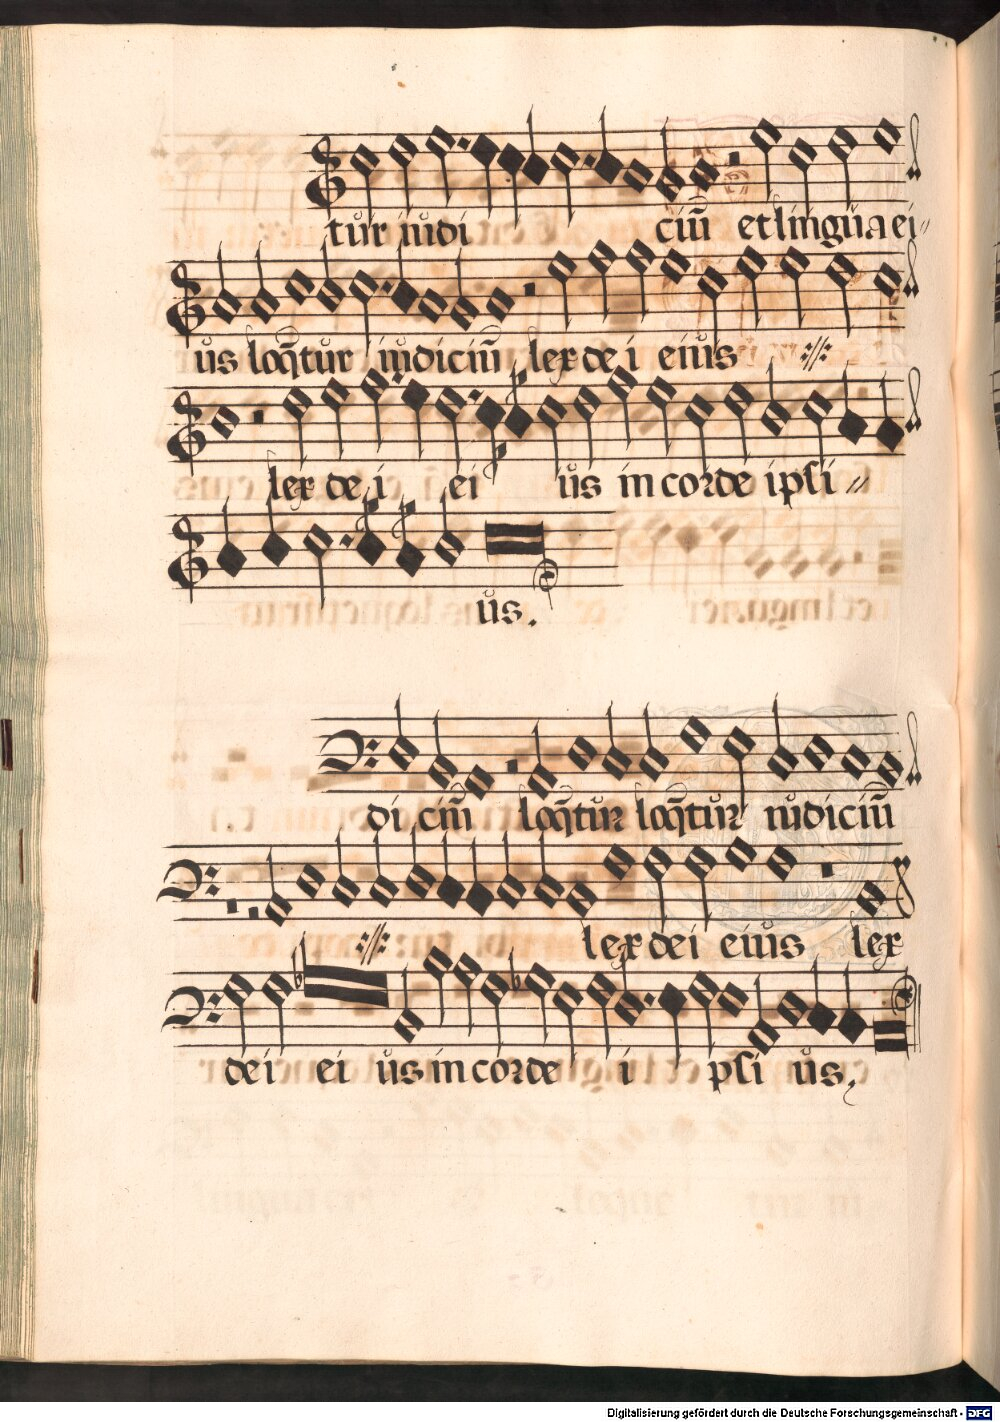 tur iudi ciū et lingua ei
us loq̄tur iudiciū lex de i eius ·//·
lex de i ei us in corde ipsi //
us.
di ciū loq̄tur loq̄tur iudiciū
·//· lex dei eius lex
dei ei us in corde i psi us.
Digitalisierung gefördert durch die Deutsche Forschungsgemeinschaft - DFG